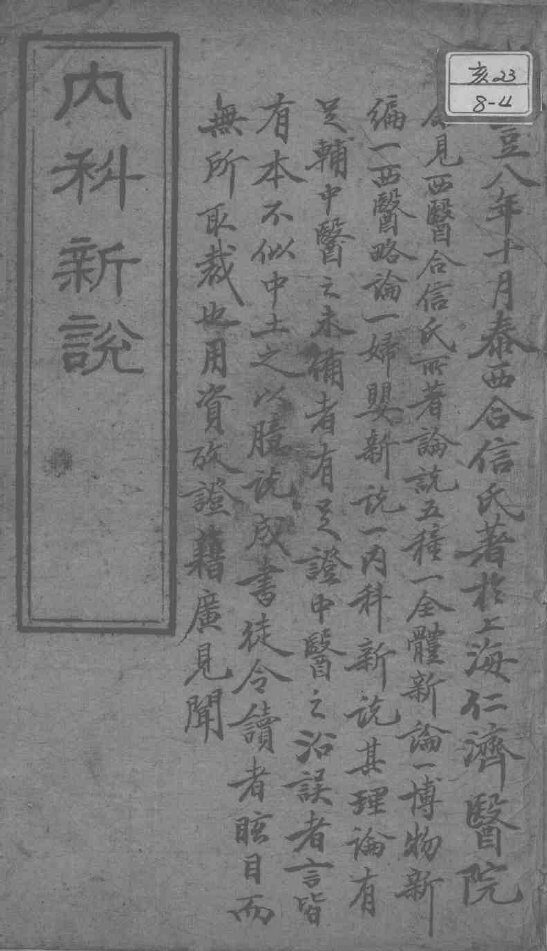 豐八年十月泰西合信氏著於上海仁濟醫院
見西醫合信氏所著論說五種一全體新論一博物新
編一西醫略論一婦嬰新說一內科新說其理論有
足輔中醫之未備者有足證中醫之沿誤者言皆
有本不似中土之以臆說成書徒令讀者眩目而
無所取裁也用資攷證藉廣見聞
內科新說
亥23
8-4